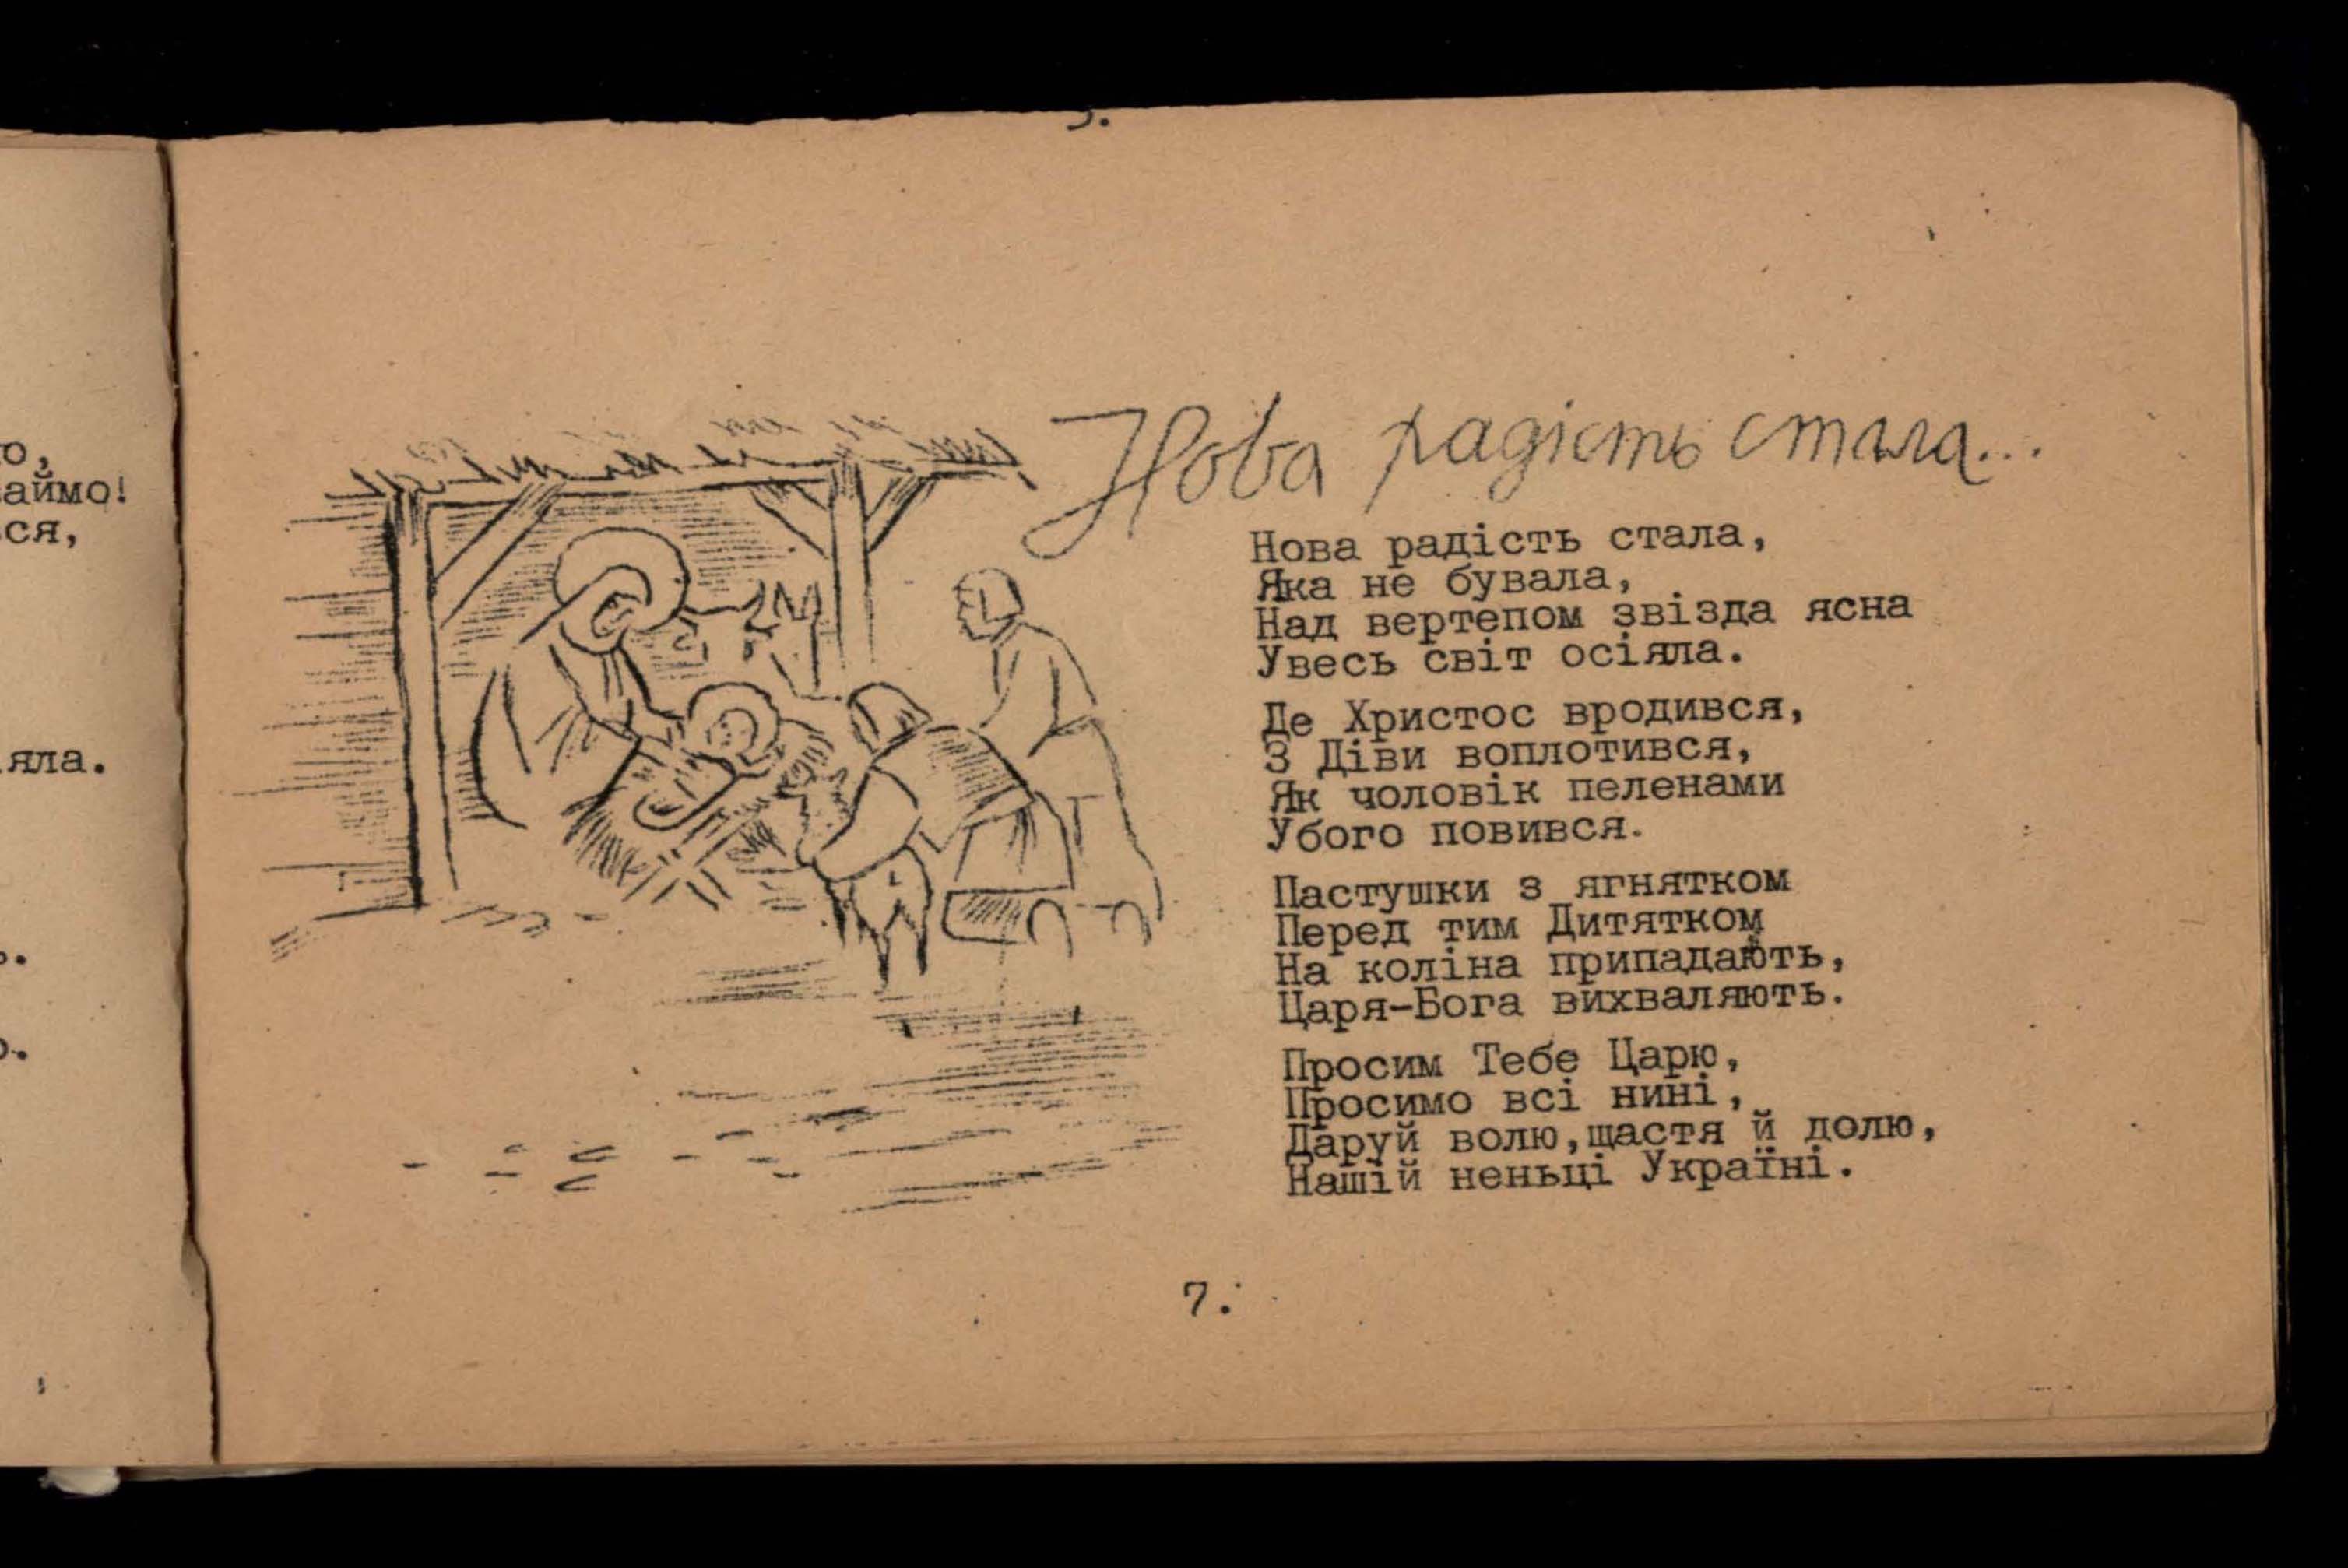 ю,
аймо!
ся,
яла.
Нова радість стала...
Нова радість стала,
Яка не бувала,
Над вертепом звізда ясна
Увесь світ осіяла.
Де Христос вродився,
З Діви воплотився,
Як чоловік пеленами
Убого повився.
Пастушки з ягнятком
Перед тим Дитятком
На коліна припадають,
Царя-Бога вихваляють.
Просим Тебе Царю,
Просимо всі нині,
Даруй волю,щастя й долю,
Нашій неньці Україні.
7.